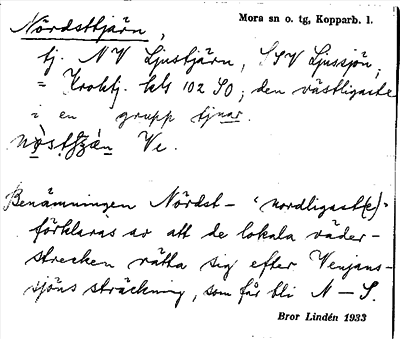 Nördsttjärn,
Mora sn o. tg, Kopparb. l.
tj. NV Ljustjärn, SSV Ljussjön;
= Kroktj. kbl 102 SO; den västligaste
i en grupp tjnar.
Ve.
Benämningen Nördst- "nordligast(e)"
förklaras av att de lokala väder-
strecken rätta sig efter Venjans-
sjöns sträckning, som får bli N–S.
Bror Lindén 1933